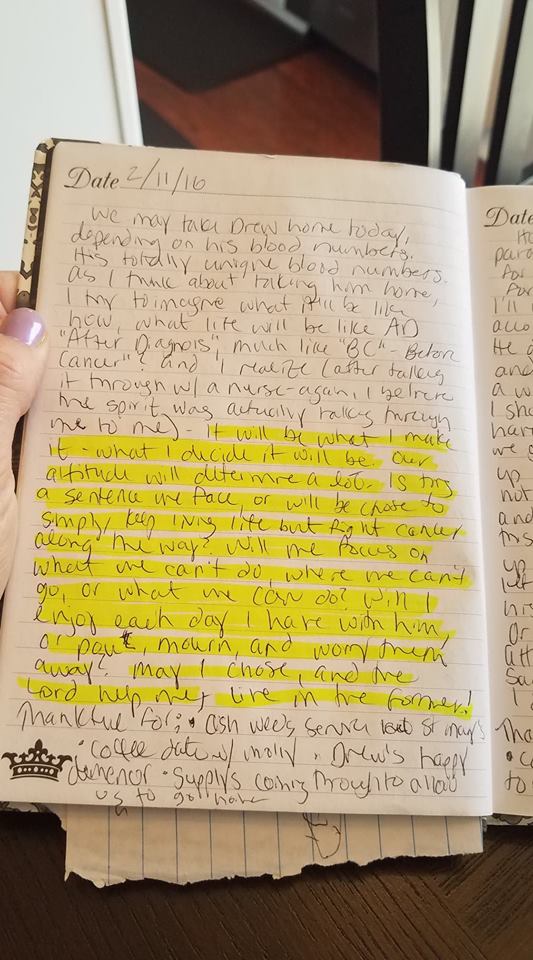 Date 2/11/16
We may take Drew home today,
depending on his blood numbers.
His totally unique blood numbers.
As I think about taking him home,
I try to imagine what it'll be like
how, what life will be like AD
"After Diagnosis", much like "BC" - Before
Cancer"? and I realize (after talking
it through w/ a nurse-again, I believe
the spirit was actually talking through
me to me) - it will be what I make
it - what I decide it will be. Our
attitude will determine a lot. Is this
a sentence we face, or will be chose to
simply keep living life but fight cancer
along the way? Will we focus on
what we can't do, where we can't
go, or what we can do? Will I
enjoy each day I have with him,
or pout, mourn, and worry them
away? May I chose, and the
Lord help me, live in the former!
Thankful for: • ash weds service St mary's
• coffee date w/ molly • Drew's happy
demenor • Supplys coming through to allow
us to go home
Date
He
paro
For
For
I'll
acco
He
and
a w
I sho
har
we
up
not
and
this
up
let
his
Or
att
Sa
I
Tha
• co
to